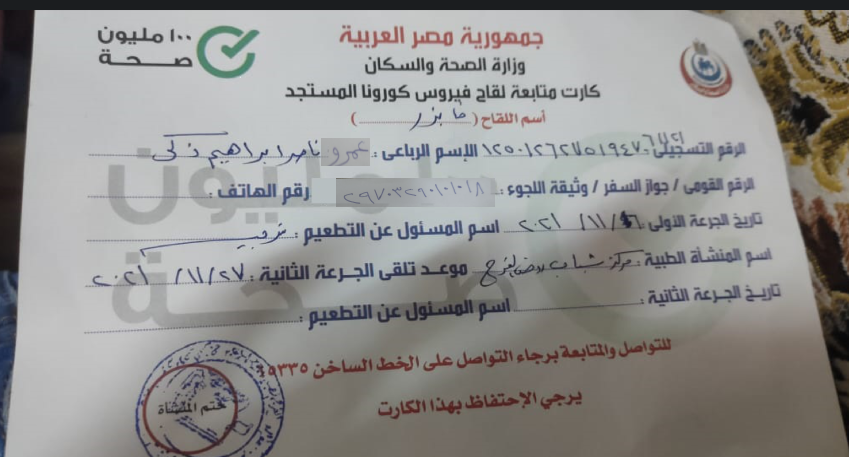 ١٠٠ مليون
صحة
جمهورية مصر العربية
وزارة الصحة والسكان
كارت متابعة لقاح فيروس كورونا المستجد
أسم اللقاح (فايزر)
الرقم التسجيلى: الإسم الرباعى: عمرو ناصر ابراهيم زكى
الرقم القومى / جواز السفر / وثيقة اللجوء: رقم الهاتف:
تاريخ الجرعة الاولى: ٦/١١/٢٠٢١ اسم المسئول عن التطعيم:
اسم المنشأة الطبية: مركز شباب موعد تلقى الجرعة الثانية: ٢٧/١١/٢٠٢١
تاريخ الجرعة الثانية: اسم المسئول عن التطعيم:
للتواصل والمتابعة برجاء التواصل على الخط الساخن ١٥٣٣٥
يرجي الإحتفاظ بهذا الكارت
ختم المنشأة